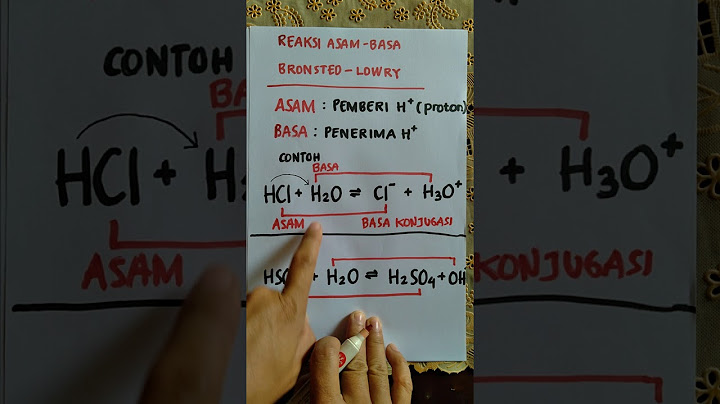 REAKSI ASAM-BASA
BRONSTED-LOWRY
ASAM : PEMBERI H⁺ (proton)
BASA : PENERIMA H⁺
CONTOH
BASA
HCl + H₂O ⇌ Cl⁻ + H₃O⁺
ASAM BASA KONJUGASI
+ H₂O ⇌ H₂SO₄ + OH